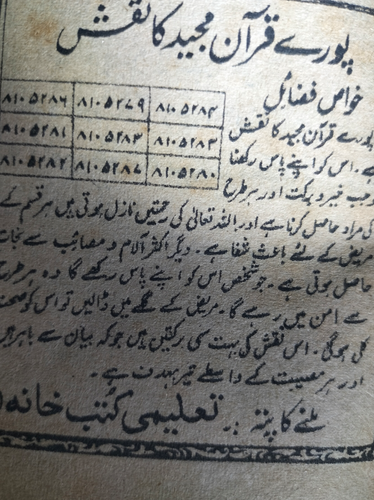 پورے قرآن مجید کا نقش
خواص فضائل
۸۱۰۵۲۸۶ ۸۱۰۵۲۷۹ ۸۱۰۵۲۸۴
پورے قرآن مجید کا نقش
۸۱۰۵۲۸۱ ۸۱۰۵۲۸۳ ۸۱۰۵۲۸۳
ہے۔ اس کو اپنے پاس رکھنا
۸۱۰۵۲۸۲ ۸۱۰۵۲۸۷ ۸۱۰۵۲۸۰
موجب خیر و برکت اور ہر طرح
کی مراد حاصل کرنا ہے اور اللہ تعالٰی کی رحمتیں نازل ہوتی ہیں ہر قسم کے
مریض کے لئے باعث شفا ہے۔ دیگر اکثر آلام و مصائب سے نجات
حاصل ہوتی ہے۔ جو شخص اس کو اپنے پاس رکھے گا وہ ہر طرح
سے امن میں رہے گا۔ مریض کے گلے میں ڈالیں تو اس کو صحت
کلی ہوگی۔ اس نقش کی بہت سی برکتیں ہیں جو کہ بیان سے باہر ہیں
اور ہر مصیبت کے واسطے تیر بہدف ہے۔
ملنے کا پتہ :۔ تعلیمی کتب خانہ